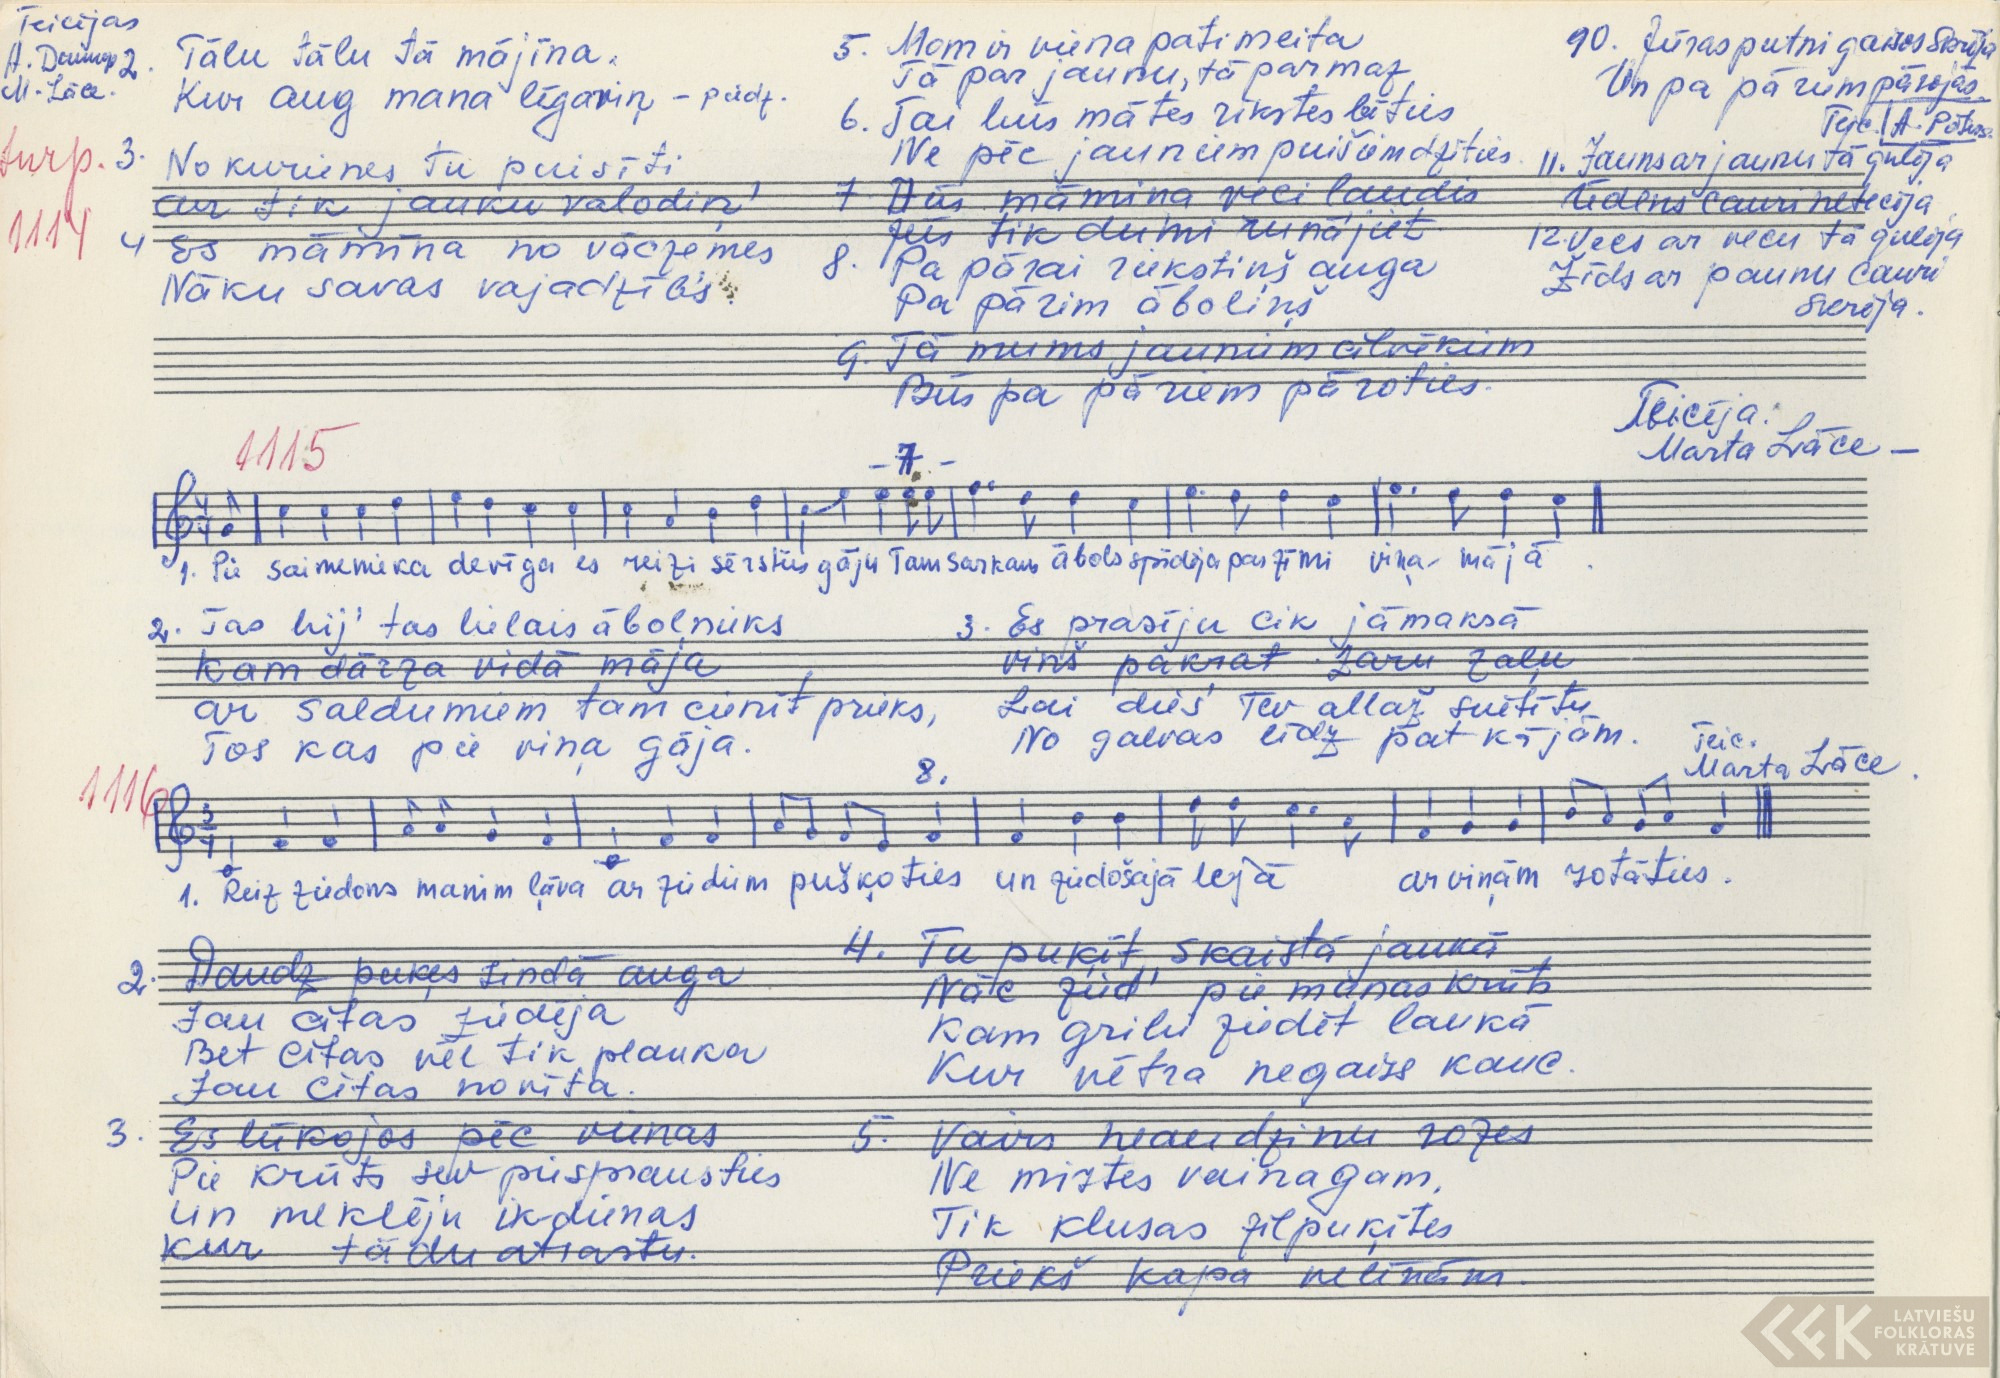 Teicējas
M. Lāce.
2. Tālu tālu tā mājīna.
Kur aug mana līgaviņ - piedz.
turp.
1114
3. No kurienes tu puisīti
ar tik jauku valodiņ'
4 Es māmīna no vāczemes
Nāku savas vajadzībs.
5. Mom ir viena pati meita
Tā par jaunu, tā par maz
6. Tai būs mātes rīkstes bīties
Ne pēc jauniem puišiem dzīties.
7 Jūs māmiņa veci laudis
jūs tik dumi runājiet
8. Pa pārai riekstiņš auga
Pa pārim āboliņš
9. Tā mums jauniem cilvēkiem
Būs pa pāriem pāroties.
90. Jūras putni gaisos skrēja
Un pa pārim pārojās.
Teic. A.
11. Jauns ar jaunu tā gulēja
Ūdens cauri netecēja
12. Vecs ar vecu tā gulēja
Žīds ar paunu cauri
skrēja.
Teicēja:
Marta Lāce -
1115
- 7 -
1. Pie saimenieka devīga es reizi sērsties gāju Tam sarkans ābols spīdēja par zīmi viņa mājā.
2. Tas bij' tas lielais āboļnieks
Kam dārza vidā māja
ar saldumiem tam cienīt prieks,
Tos kas pie viņa gāja.
3. Es prasīju cik jāmaksā
viņš pakrat zaru zaļu
Lai dies' Tev allaž svētītu
No galvas līdz pat kājām.
Teic.
Marta Lāce.
1116
8.
3/4
1. Reiz ziedons manim ļāva ar ziediem puškoties un ziedošajā lejā ar viņām rotāties.
2. Daudz puķes zindā auga
Jau citas ziedēja
Bet citas vēl tik plauka
Jau citas novīta.
3. Es lūkojos pēc vienas
Pie krūts sev piesprausties
un meklēju ik-dienas
Kur tādu atrastu.
4. Tu puķīt skaistā jaukā
Nāc zied' pie manas krūts
Kam gribi ziedēt laukā
Kur vētra negaiss kauc.
5. Vairs neaudzinu rozes
Ne mirtes vainagam,
Tik klusas zilpuķītes
Priekš kapa velēnām.
LATVIEŠU
FOLKLORAS
KRĀTUVE